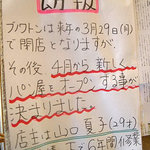 ブノワトンは来年の3月29日(月)
で閉店となりますが、
その後 4月から新しく
パン屋をオープンする事が
決まりました
店主は山口 夏子(29才)
6年間修業